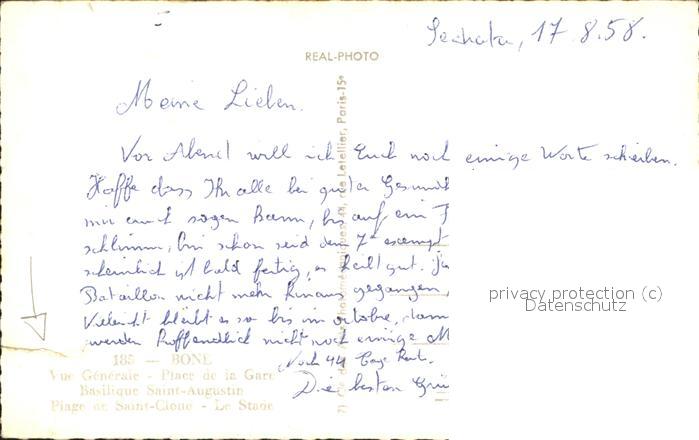 Sechata, 17.8.58.
REAL-PHOTO
Meine Lieben.
Vor Abend will ich Euch noch einige Worte schreiben.
Hoffe dass Ihr alle bei guter Gesund
mir auch sagen kann, bis auf ein
schlimm, bin schon seid dem 7ten exempt
scheinlich ist bald fertig, es heilt gut.
Bataillon nicht mehr hinaus gegangen,
Vieleicht bleibt es so bis im october,
werden hoffendlich nicht noch einige M
Noch 44 Tage
Die besten Grü
185 — BONE
Vue Générale - Place de la Gare
Basilique Saint-Augustin
Plage de Saint-Cloud - Le Stade
rue Letellier, Paris-15e
privacy protection (c)
Datenschutz